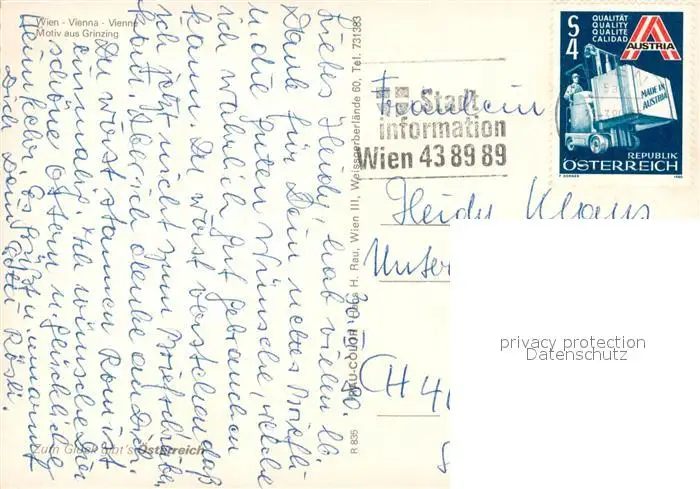 Wien - Vienna - Vienne
Motiv aus Grinzing
Liebes Heidy, hab vielen lb.
Dank für Dein nettes Briefli
u. die guten Wünsche, welche
ich wahrlich gut gebrauchen
kann. Du wirst verstehen daß
ich jetzt nicht zum Briefschreiben
komt. Aber ich denke an Dich.
Du wirst staunen Rom ist
einmalig. Ich wünsche Dir
schöne Ostern u. glückliche
Heimkehr. Es grüßt u. umarmt
Dich Dein Gotti Rösli.
Zum Glück gibt's Österreich
RAU-COLOR Hans H. Rau, Wien III, Weissgerberlände 60, Tel. 731383
R 835
QUALITÄT
QUALITY
QUALITE
CALIDAD
S 4
AUSTRIA
MADE IN
AUSTRIA
REPUBLIK
ÖSTERREICH
1980
Stadt
information
Wien 43 89 89
Fräulein
Heidy Klaus
Unter
CH 4
privacy protection
Datenschutz